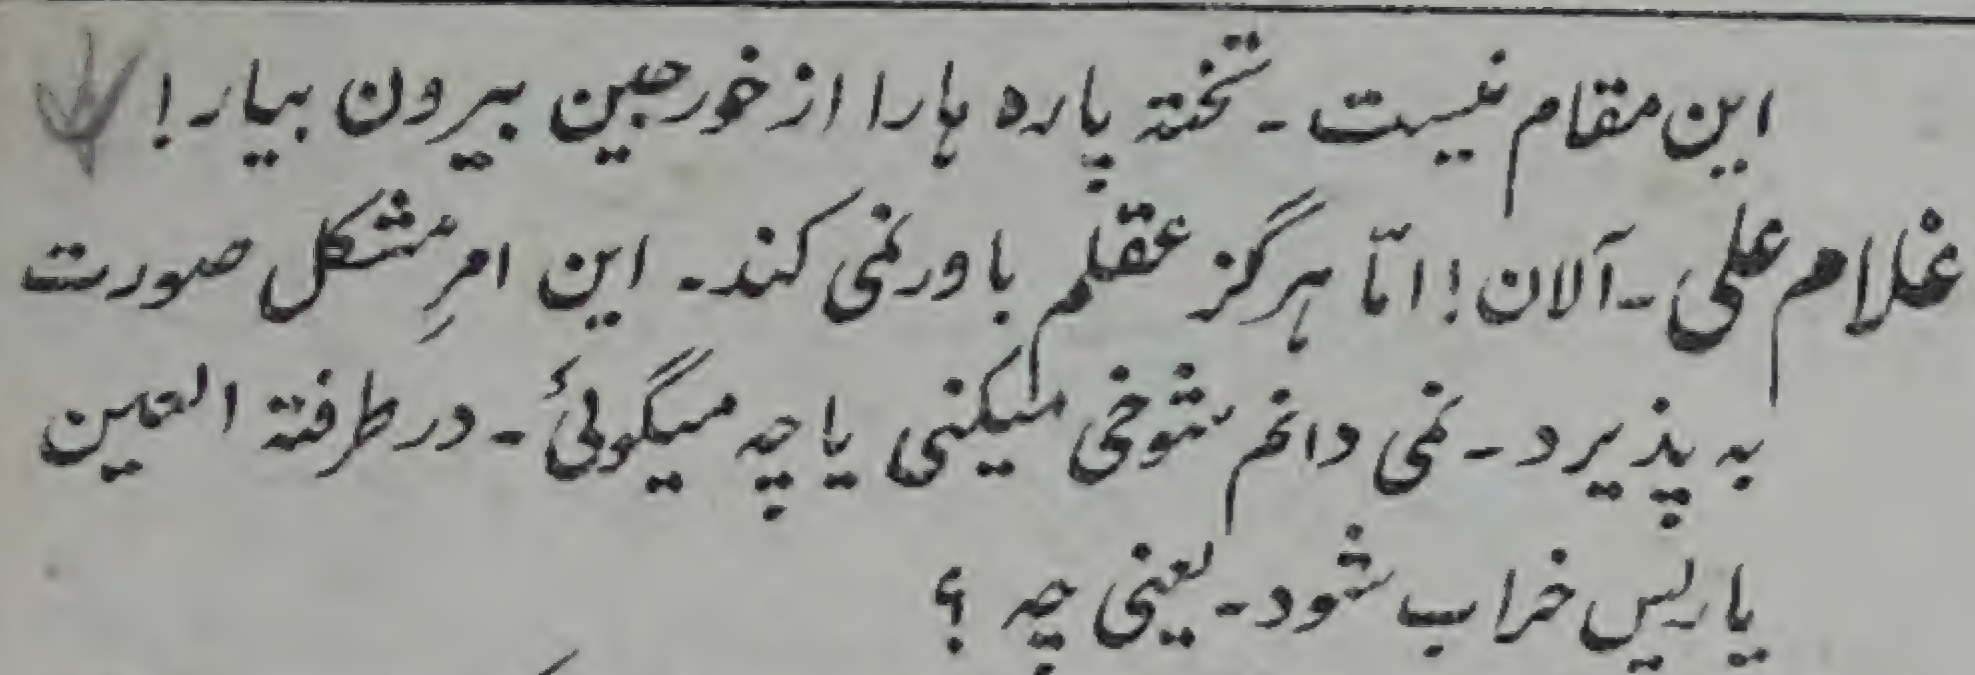 این مقام نیست - تخته پاره ہا را از خورجین بیرون بیار!
غلام علی - آلان! امّا ہرگز عقلم باور نمی کند - این امرِ مشکل صورت
به پذیرد - نمی دانم شوخی میکنی یا چه میگوئی - در طرفتہ العین
پاریس خراب شود - یعنی چه؟